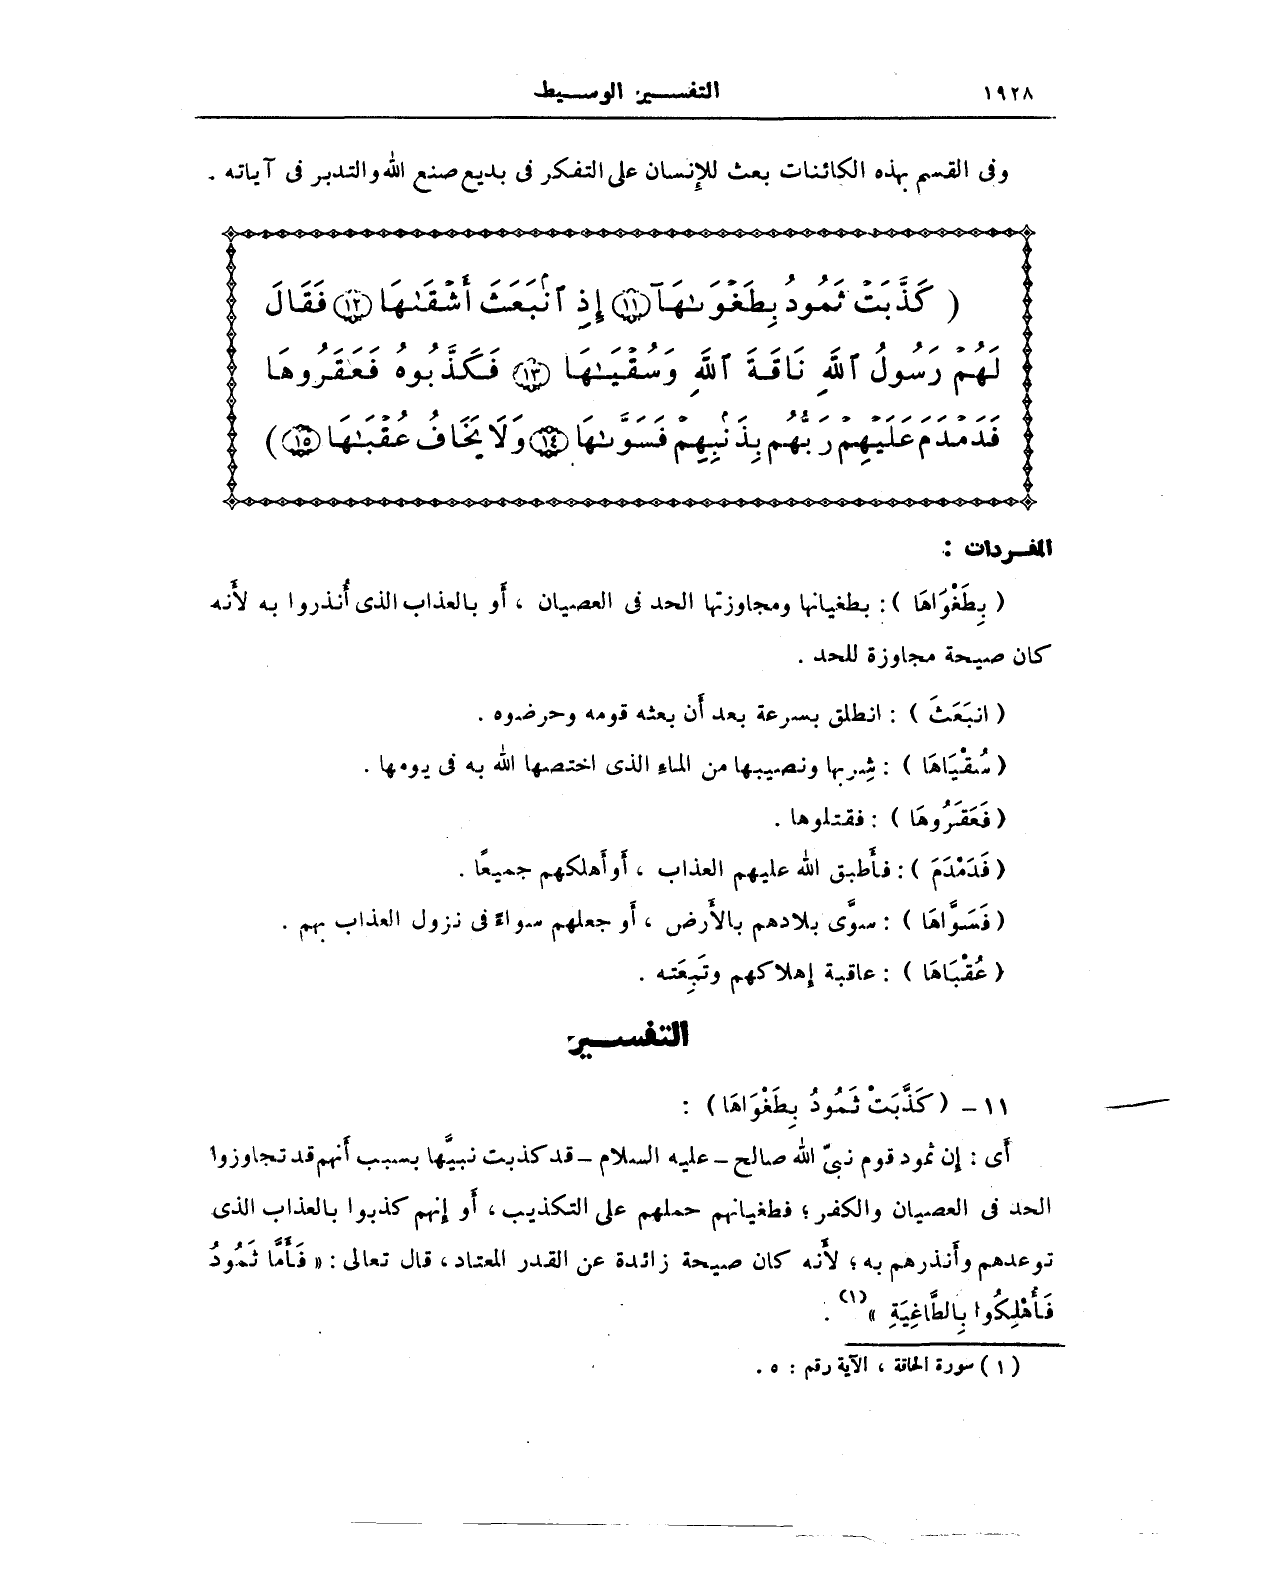 ١٩٢٨
التفسير الوسيط
وفى القسم بهذه الكائنات بعث للإنسان على التفكر فى بديع صنع الله والتدبر فى آياته .
( كَذَّبَتْ ثَمُودُ بِطَغْوَىٰهَآ ١١ إِذِ ٱنۢبَعَثَ أَشْقَىٰهَا ١٢ فَقَالَ
لَهُمْ رَسُولُ ٱللَّهِ نَاقَةَ ٱللَّهِ وَسُقْيَـٰهَا ١٣ فَكَذَّبُوهُ فَعَقَرُوهَا
فَدَمْدَمَ عَلَيْهِمْ رَبُّهُم بِذَنۢبِهِمْ فَسَوَّىٰهَا ١٤ وَلَا يَخَافُ عُقْبَـٰهَا ١٥ )
المفردات :
( بِطَغْوَاهَا ) : بطغيانها ومجاوزتها الحد فى العصيان ، أو بالعذاب الذى أُنذروا به لأَنه
كان صيحة مجاوزة للحد .
( انبَعَثَ ) : انطلق بسرعة بعد أَن بعثه قومه وحرضوه .
( سُقْيَاهَا ) : شِربها ونصيبها من الماء الذى اختصها الله به فى يومها .
( فَعَقَرُوهَا ) : فقتلوها .
( فَدَمْدَمَ ) : فأَطبق الله عليهم العذاب ، أَو أَهلكهم جميعًا .
( فَسَوَّاهَا ) : سوَّى بلادهم بالأَرض ، أَو جعلهم سواءً فى نزول العذاب بهم .
( عُقْبَاهَا ) : عاقبة إهلاكهم وتَبِعَته .
التفسير
١١ – ( كَذَّبَتْ ثَمُودُ بِطَغْوَاهَا ) :
أَى : إن ثمود قوم نبىّ الله صالح – عليه السلام – قد كذبت نبيَّها بسبب أَنهم قد تجاوزوا
الحد فى العصيان والكفر ؛ فطغيانهم حملهم على التكذيب ، أَو إنهم كذبوا بالعذاب الذى
توعدهم وأَنذرهم به ؛ لأَنه كان صيحة زائدة عن القدر المعتاد ، قال تعالى : « فَأَمَّا ثَمُودُ
فَأُهْلِكُوا بِالطَّاغِيَةِ » (١) .
( ١ ) سورة الحاقة ، الآية رقم : ٥ .